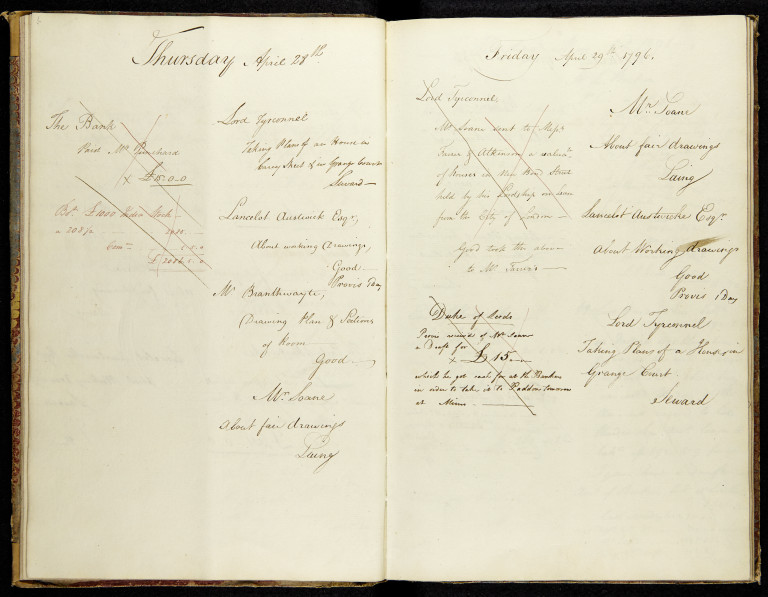 Thursday April 28th
The Bank
Paid Mr Punchard
x £15.0.0
Bot. £1000 India Stock
a 208 ¾
Com
Lord Tyrconnel
Taking Plans of an House in
Carey Street & in Grange Court
Seward
Lancelot Austwick Esqr,
About working Drawings,
Good
Provis 1 Day
Mr Branthwayte,
Drawing Plan & Sections
of Room
Good
Mr. Soane
About fair drawings
Laing
Friday April 29th 1796.
Lord Tyrconnel
Mr Soane sent to Messrs
Farrer & Atkinson a valuan
of Houses in New Bond Street
held by his Lordship on Lease
from the City of London
Good took the above
to Mr Farrer's
Duke of Leeds
Provis received of Mr Soane
a Draft for
x £15
which he got cash for at the Bankers
in order to take it to Paddon tomorrow
at Mims
Mr. Soane
About fair drawings
Laing
Lancelot Austwicke Esqr.
About Working drawings
Good
Provis 1 Day
Lord Tyrconnel
Taking Plans of a House in
Grange Court.
Seward